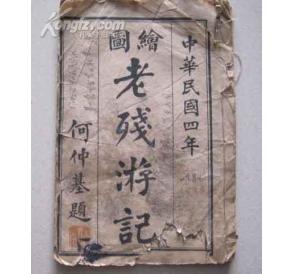 中華民國四年
繪圖
老殘游記
何仲基題
Kongfz.com